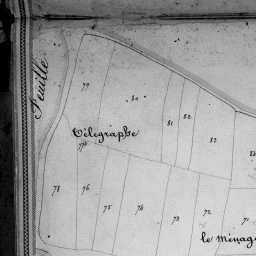 Feuille
79
80
81
82
83
Télégraphe
78
76
75
74
73
72
71
le Ménag